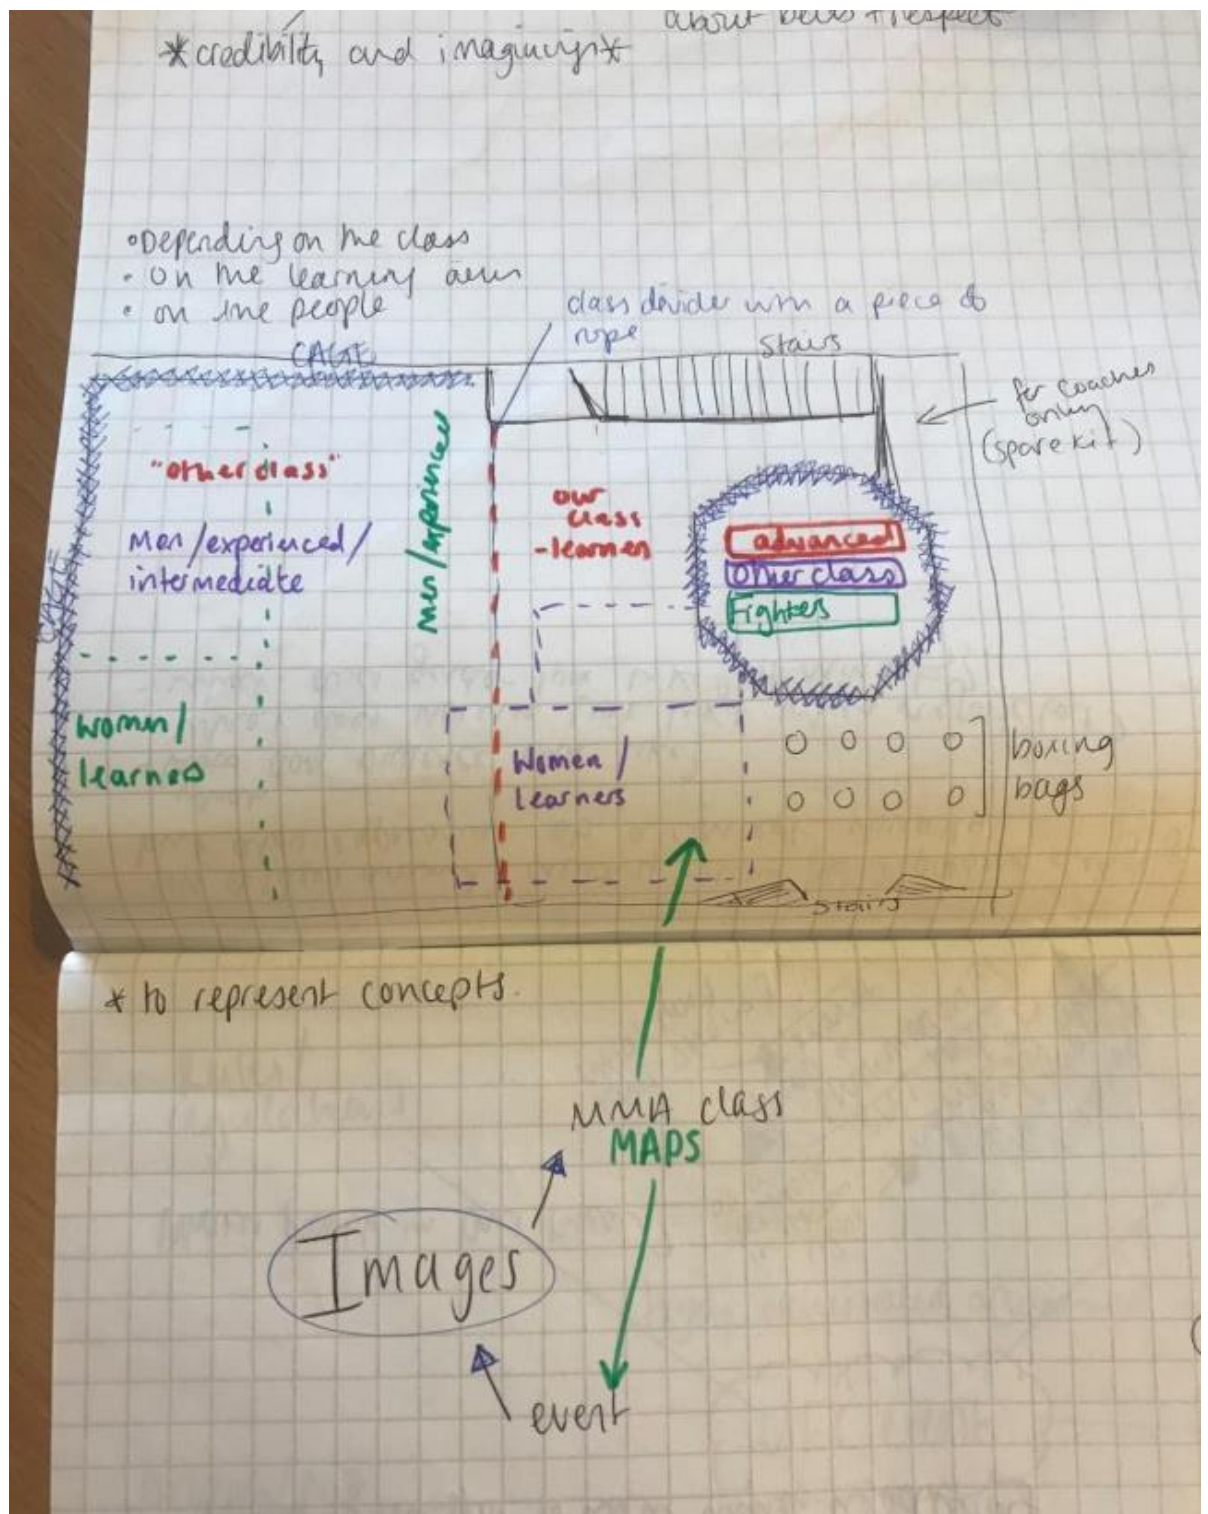 about
*credibility and imaginings*
•Depending on the class
• on the learning
• on the people
class divider with a piece of
rope
Stairs
CAGE
for coaches
only
(spare kit)
"other class"
Men/experienced/
intermediate
men/experienced
our
class
-learners
advanced
other class
Fighters
CAGE
women/
learners
Women/
learners
boxing
bags
Stairs
* to represent concepts.
MMA class
MAPS
Images
event